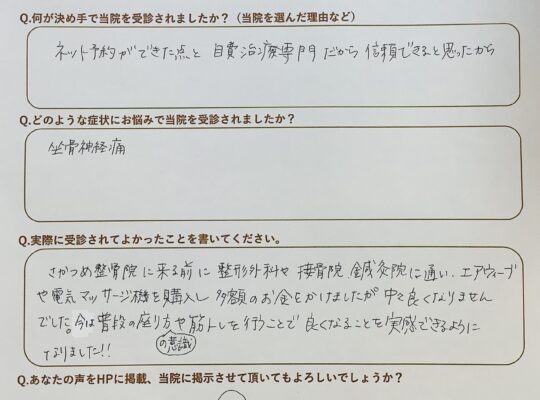 Q.何が決め手で当院を受診されましたか？（当院を選んだ理由など）
ネット予約ができた点と 自費治療専門だから信頼できると思ったから
Q.どのような症状にお悩みで当院を受診されましたか？
坐骨神経痛
Q.実際に受診されてよかったことを書いてください。
さかつめ整骨院に来る前に 整形外科や 接骨院、鍼灸院に通い、エアウィーブ
や電気マッサージ機を購入し 多額のお金をかけましたが 中々良くなりません
でした。今は普段の座り方や筋トレを行うことで 良くなることを実感できるように
の意識
なりました!!
Q.あなたの声をHPに掲載、当院に掲示させて頂いてもよろしいでしょうか？